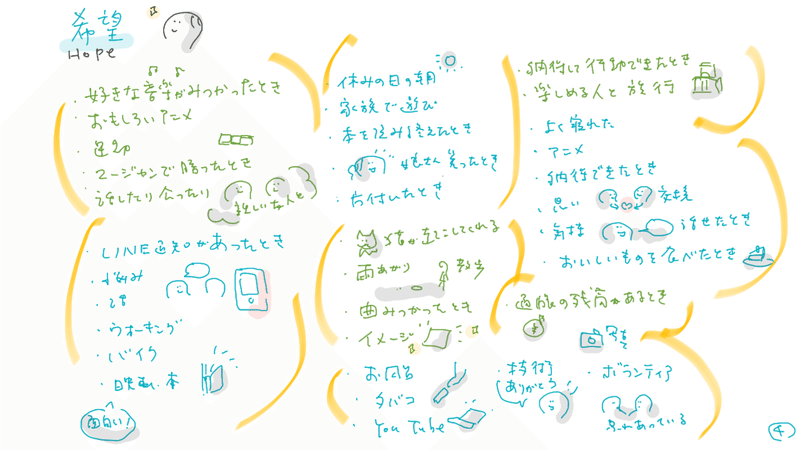 希望
Hope
・好きな音楽がみつかったとき
・おもしろいアニメ
・運動
・マージャンで勝ったとき
・話したり会ったり
親しい友人と
・LINE通知があったとき
・悩み
・ウォーキング
・バイク
・映画、本
面白い!
・休みの日の朝
・家族で遊び
・本を読み終えたとき
笑ったとき
・片付いたとき
・猫が起こしてくれる
・雨あがり 散歩
・曲みつかったとき
・イメージ
・お風呂
・タバコ
・YouTube
・納得して行動できたとき
・楽しめる人と旅行
・よく寝れた
・アニメ
・納得できたとき
・思い 交換
・気持 話せたとき
・おいしいものを食べたとき
・通帳の残高があるとき
写真
ありがとう
・ボランティア
あっている
4